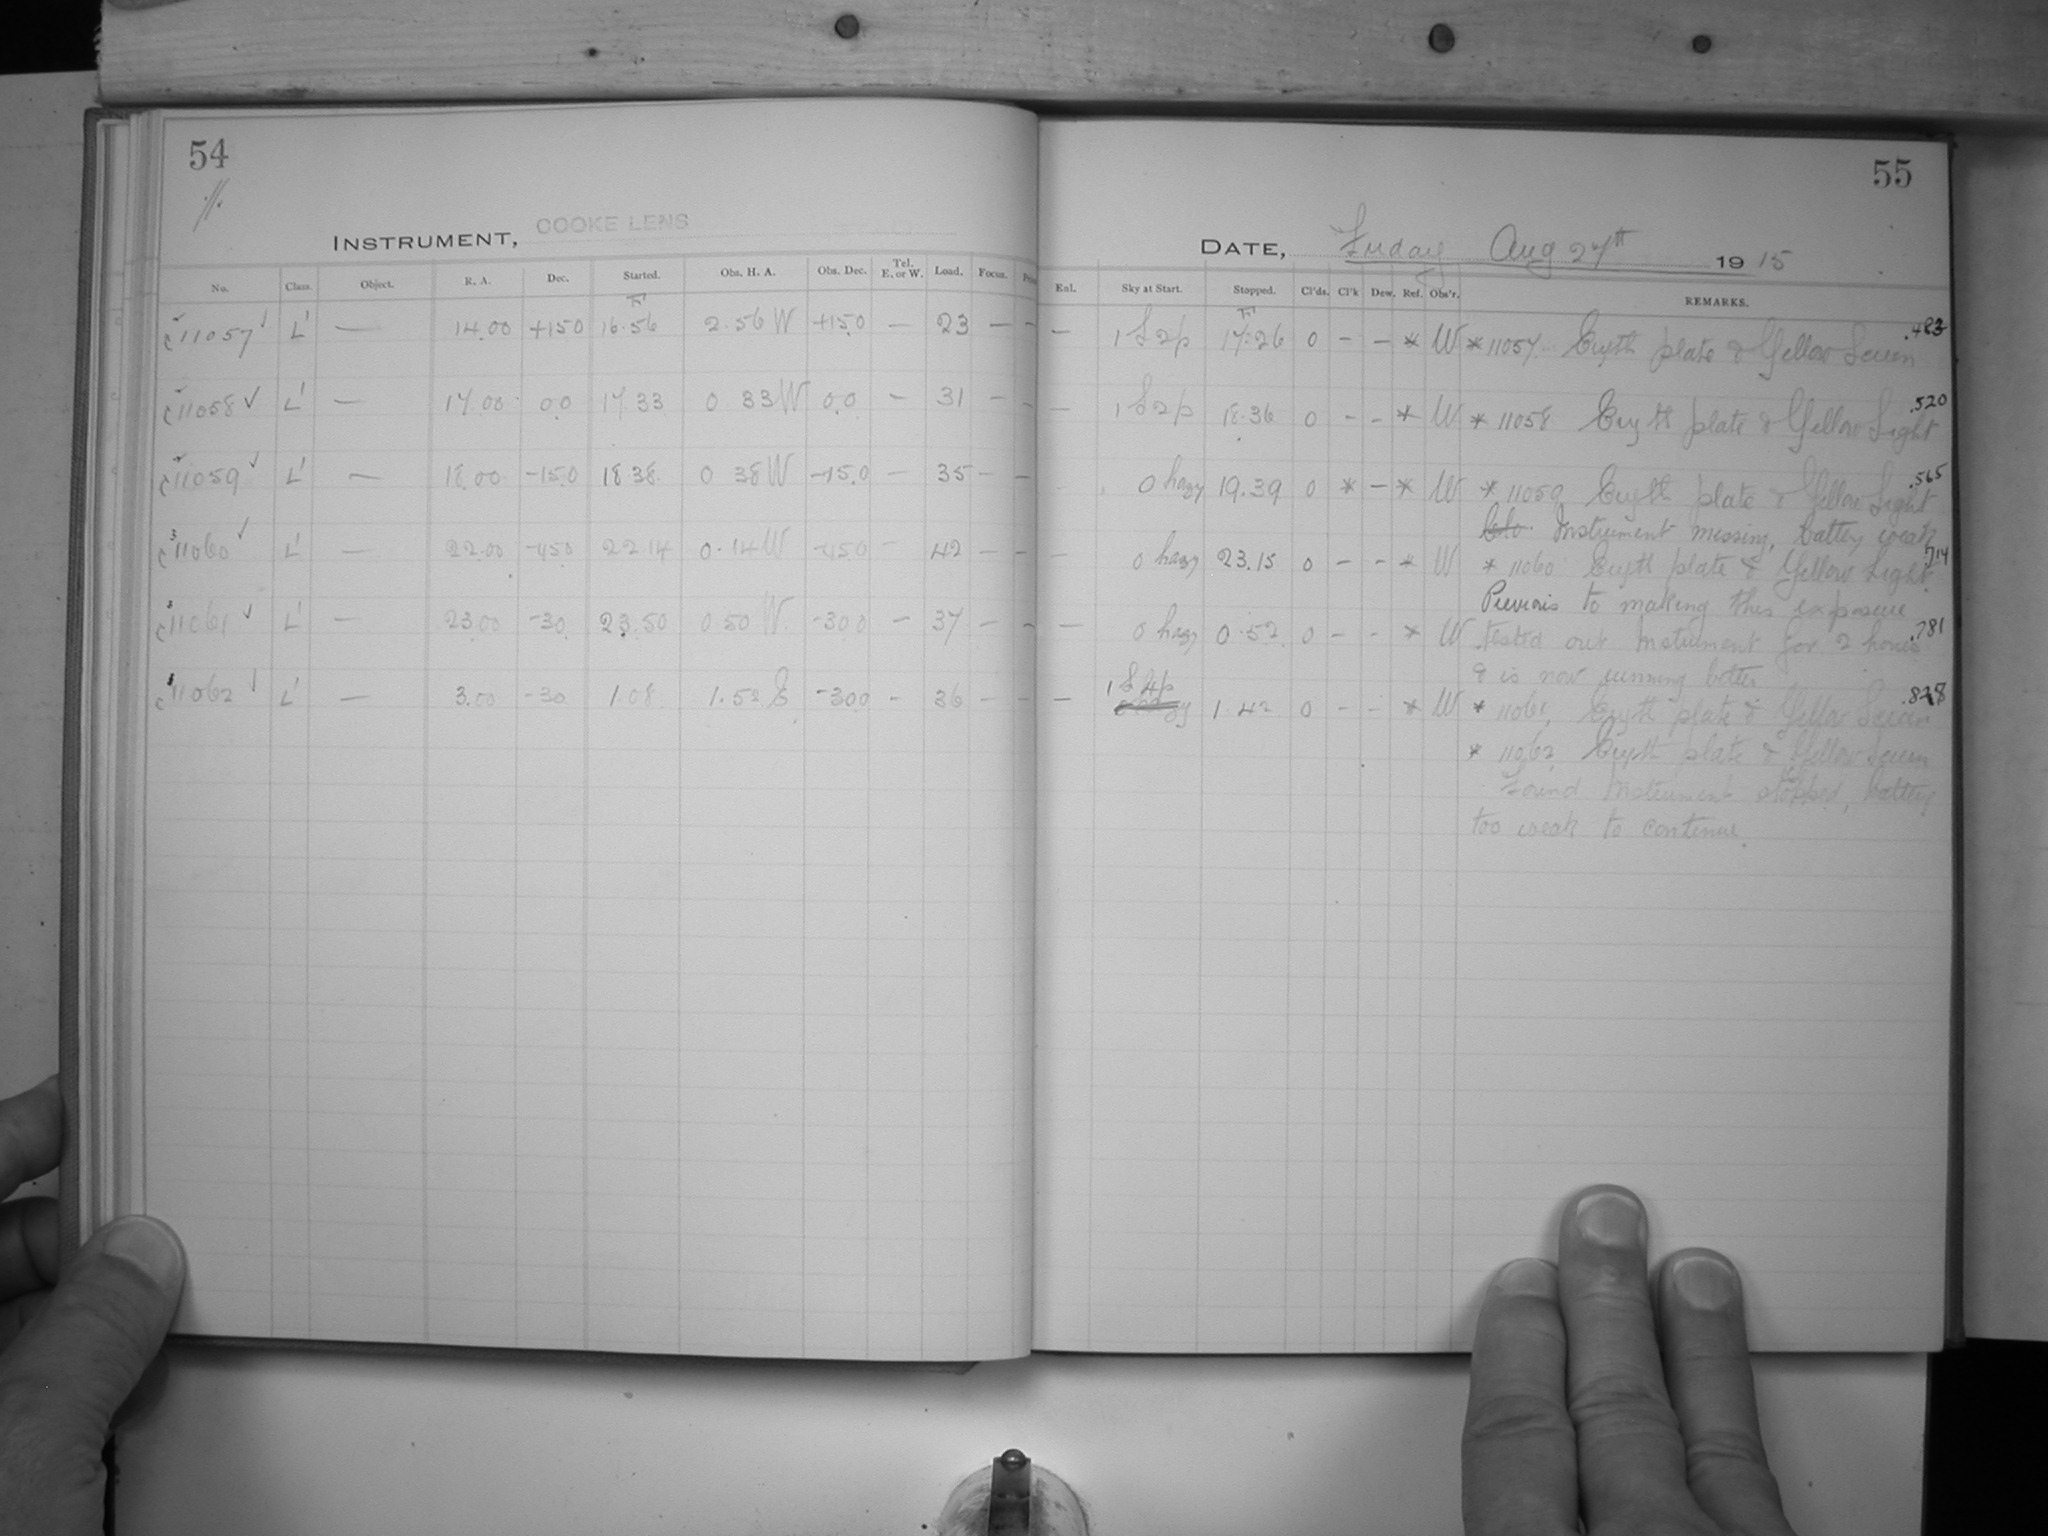 54
55
INSTRUMENT, COOKE LENS
DATE, Friday Aug 27th 1915
No. Class. Object. R. A. Dec. Started. Obs. H. A. Obs. Dec. Tel. E. or W. Load. Focus.
Enl. Sky at Start. Stopped. Cl'ds. Cl'k Dew. Ref. Obs'r. REMARKS.
c 11057 ✓ L' — 14.00 +15.0 16.56 2.56 W +15.0 — 23 — —
— 1 S 2p 17.26 0 - - * W * 11057 Cryth plate & Yellow Screen .483
c 11058 ✓ L' — 17.00 0.0 17.33 0 33 W 0.0 — 31 — —
— 1 S 2p 18.36 0 - - * W * 11058 Cryth plate & Yellow Light .520
c 11059 ✓ L' — 18.00 -15.0 18.38 0 38 W -15.0 — 35 — —
0 hazy 19.39 0 * - * W * 11059 Cryth plate & Yellow Light .565
Instrument missing, battery weak
c 11060 ✓ L' — 22.00 -45.0 22 14 0.14 W -45.0 — 42 — —
— 0 hazy 23.15 0 - - * W * 11060 Cryth plate & Yellow Light .714
Previous to making this exposure
c 11061 ✓ L' — 23.00 -30 23.50 0 50 W. -30 0 — 37 — —
— 0 hazy 0.52 0 - - * W tested out Instrument for 2 hours .781
& is now running better
c 11062 ✓ L' — 3.00 -30 1.08 1.52 E -30 0 — 36 — —
— 1 S 4p 1.42 0 - - * W * 11061, Cryth plate & Yellow Screen
* 11062 Cryth plate & Yellow Screen
Found Instrument stopped, battery
too weak to continue.